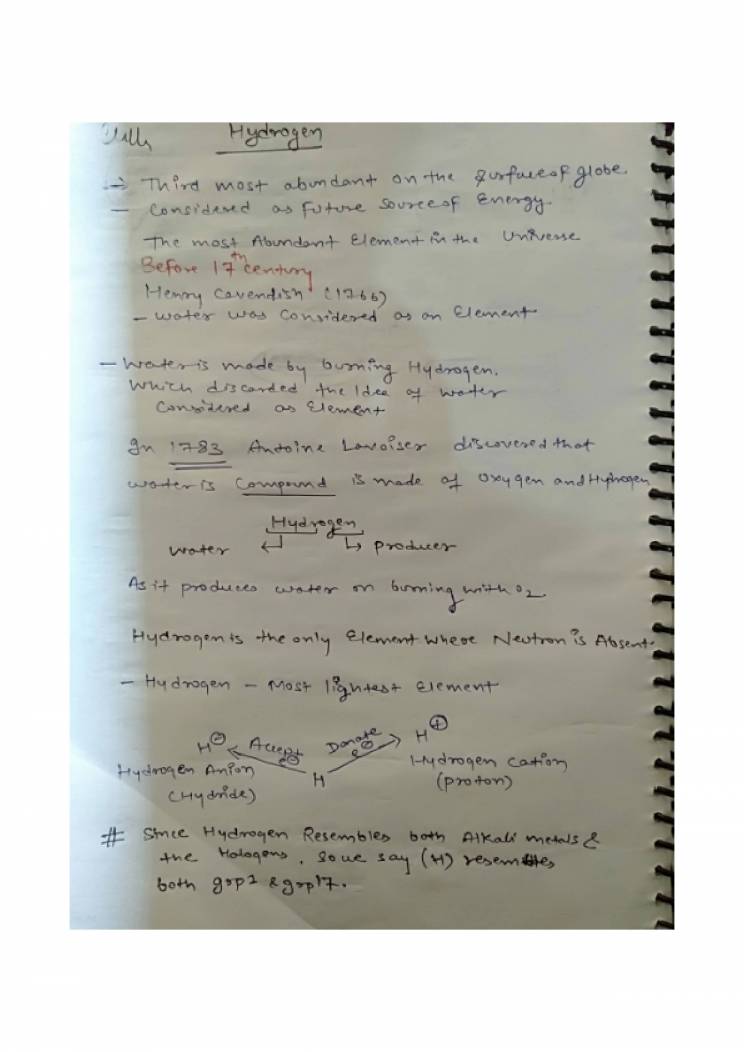 Hydrogen
→ Third most abundant on the surface of globe.
- Considered as future source of Energy.
The most Abundant Element in the Universe
Before 17th century
Henry Cavendish (1766)
- Water was Considered as an Element
- Water is made by burning Hydrogen.
Which discarded the Idea of water
Considered as Element
In 1783 Antoine Lavoiser discovered that
water is Compound is made of Oxygen and Hydrogen
Hydrogen
water ↲ ↳ producer
As it produces water on burning with O2.
Hydrogen is the only Element where Neutron is Absent.
- Hydrogen - Most lightest Element
H⊖ Accept e⊖ H Donate e⊖ H⊕
Hydrogen Anion Hydrogen Cation
(Hydride) (proton)
# Since Hydrogen Resembles both Alkali metals &
the Halogens, so we say (H) resembles
both grp1 & grp17.